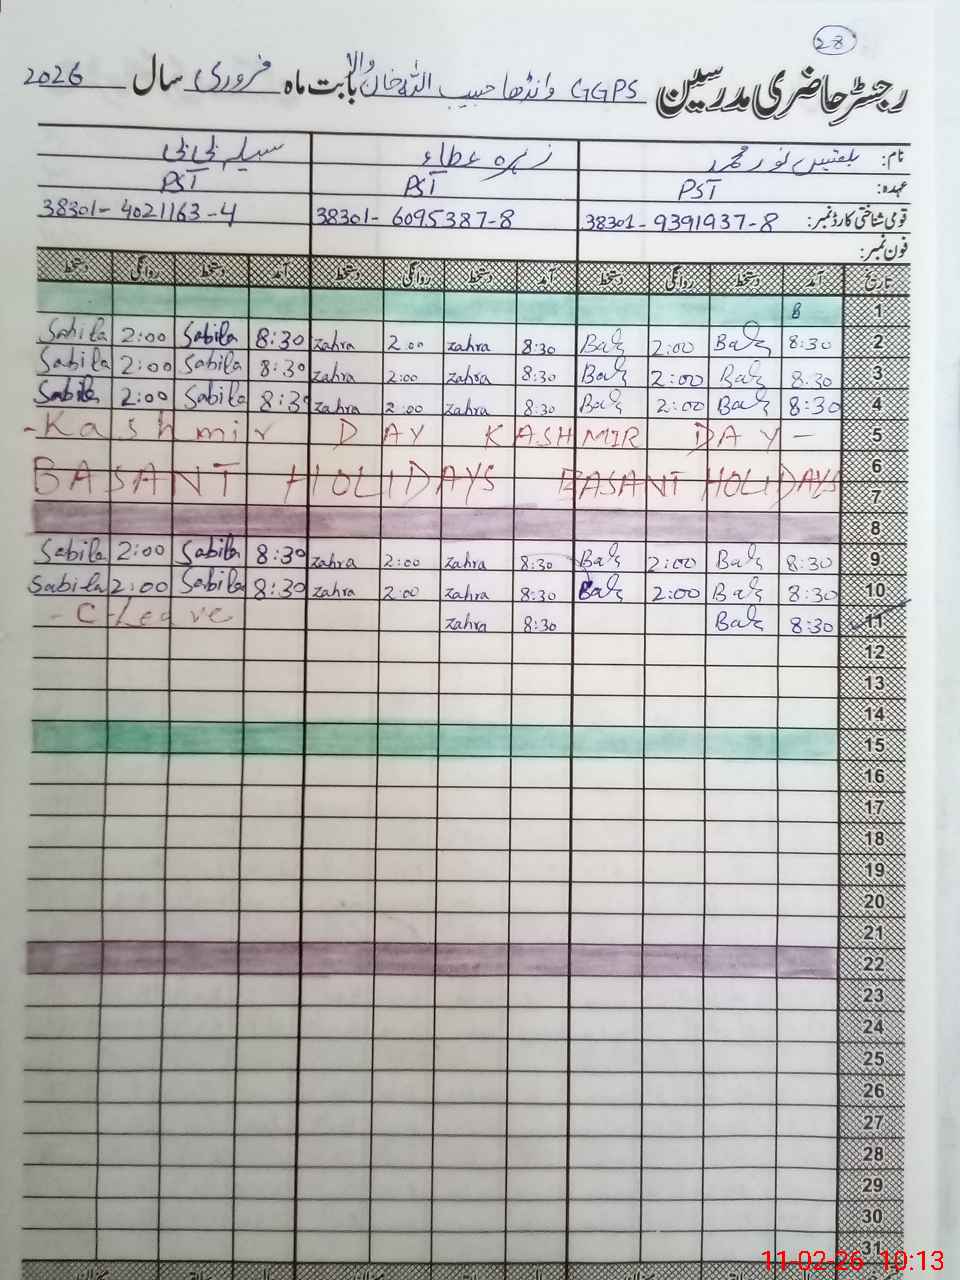 28
رجسٹر حاضری مدرسین GGPS وانڈھا حبیب اللہ خان والا بابت ماہ فروری سال 2026
نام: بلقیس نور محمد زہرہ عطاء سبیلہ بی بی
عہدہ: PST PST PST
قومی شناختی کارڈ نمبر: 38301-9391937-8 38301-6095387-8 38301-4021163-4
فون نمبر:
تاریخ آمد دستخط روانگی دستخط آمد دستخط روانگی دستخط آمد دستخط روانگی دستخط
1 B
2 8:30 2:00 8:30 zahra 2:00 zahra 8:30 Sabila 2:00 Sabila
3 8:30 2:00 8:30 zahra 2:00 zahra 8:30 Sabila 2:00 Sabila
4 8:30 2:00 8:30 zahra 2:00 zahra 8:30 Sabila 2:00 Sabila
-Kashmir DAY KASHMIR DAY- 5
6
BASANT HOLIDAYS BASANT HOLIDAYS
7
8
9 8:30 2:00 8:30 zahra 2:00 zahra 8:30 Sabila 2:00 Sabila
10 8:30 2:00 8:30 zahra 2:00 zahra 8:30 Sabila 2:00 Sabila
11 8:30 8:30 zahra - C-Leave
12
13
14
15
16
17
18
19
20
21
22
23
24
25
26
27
28
29
30
31
11-02-26 10:13